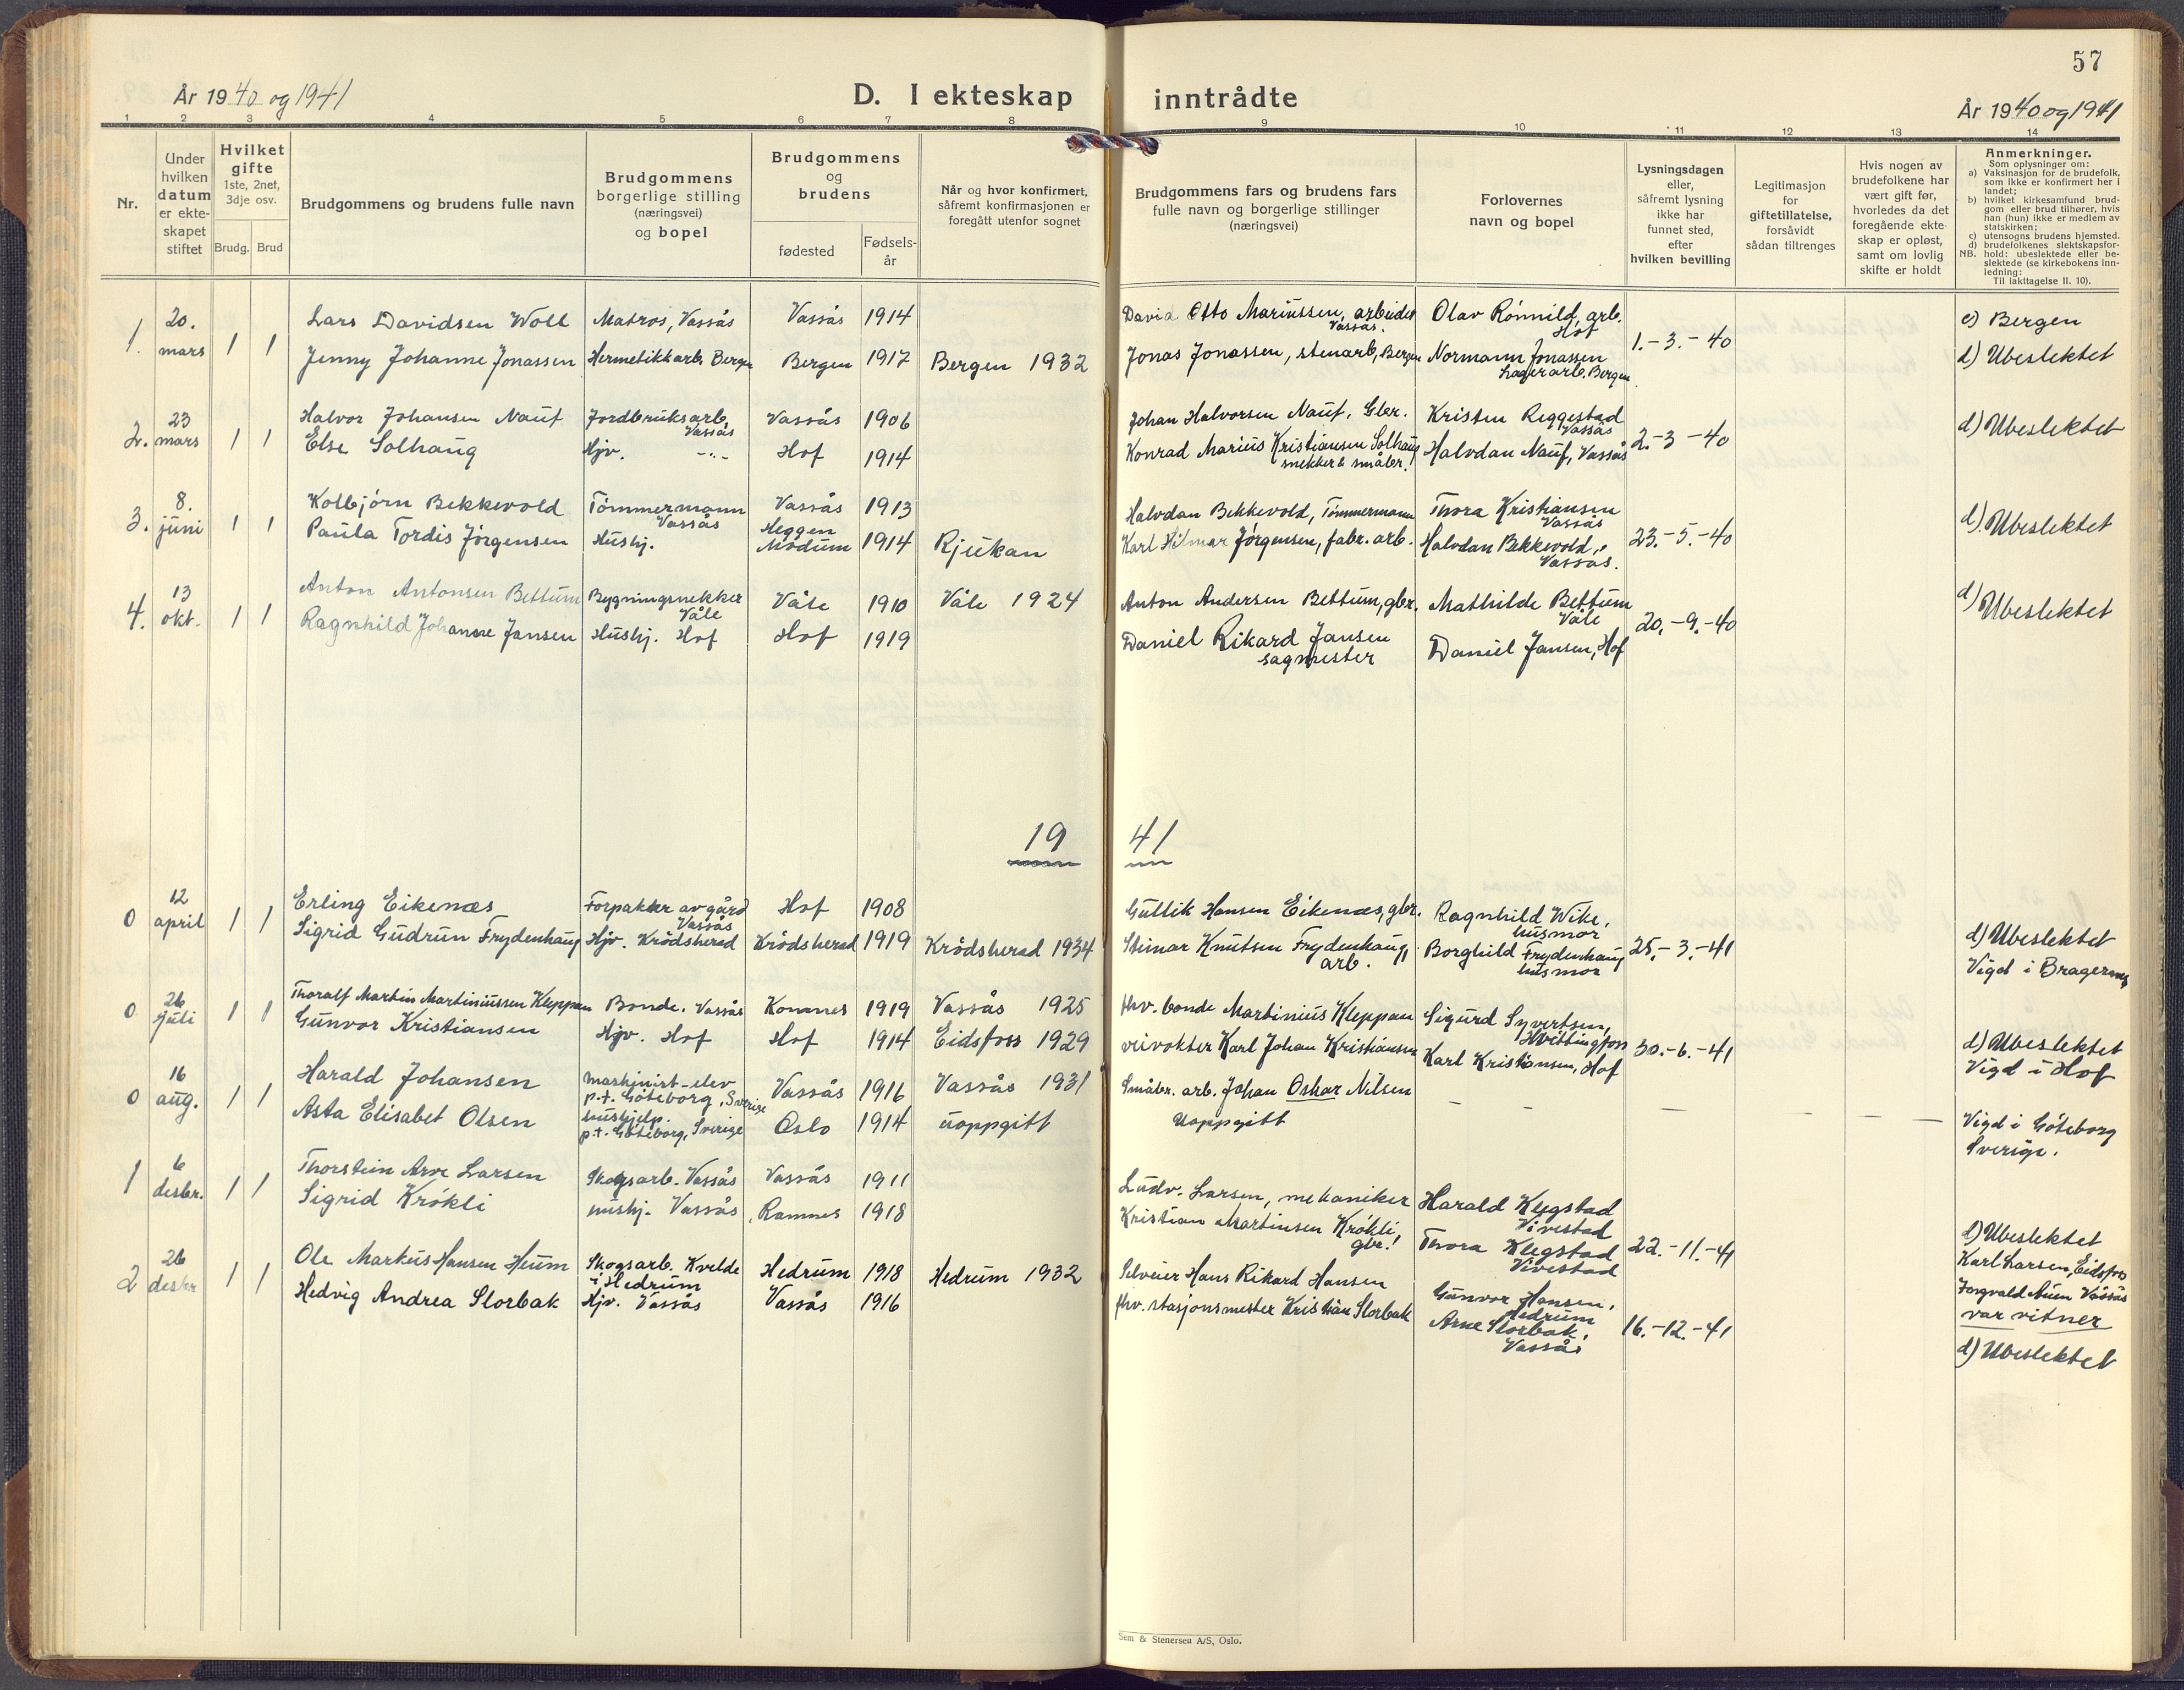 57
År 1940 og 1941
D. I ekteskap inntrådte
År 1940 og 1941
1 2 3 4 5 6 7 8 9 10 11 12 13 14
Nr.
Under
hvilken
datum
er ekte-
skapet
stiftet
Hvilket
gifte
1ste, 2net,
3dje osv.
Brudg. Brud
Brudgommens og brudens fulle navn
Brudgommens
borgerlige stilling
(næringsvei)
og bopel
Brudgommens
og
brudens
fødested
Fødsels-
år
Når og hvor konfirmert,
såfremt konfirmasjonen er
foregått utenfor sognet
Brudgommens fars og brudens fars
fulle navn og borgerlige stillinger
(næringsvei)
Forlovernes
navn og bopel
Lysningsdagen
eller,
såfremt lysning
ikke har
funnet sted,
efter
hvilken bevilling
Legitimasjon
for
giftetillatelse,
forsåvidt
sådan tiltrenges
Hvis nogen av
brudefolkene har
vært gift før,
hvorledes da det
foregående ekte-
skap er opløst,
samt om lovlig
skifte er holdt
Anmerkninger.
Som oplysninger om:
a) Vaksinasjon for de brudefolk,
som ikke er konfirmert her i
landet;
b) hvilket kirkesamfund brud-
gom eller brud tilhører, hvis
han (hun) ikke er medlem av
statskirken;
c) utensogns brudens hjemsted.
d) brudefolkenes slektskapsfor-
NB. hold: ubeslektede eller be-
slektede (se kirkebokens inn-
ledning:
Til iakttagelse II. 10).
1. 20. mars 1 1
Lars Davidsen Woll Matros, Vassås Vassås 1914
David Otto Mariussen, arbeider Vassås. Olav Rönnild, arb. Hof
Jenny Johanne Jonassen Hermetikkarb. Bergen Bergen 1917 Bergen 1932
Jonas Jonassen, stenarb, Bergen Normann Jonassen Lagerarb. Bergen
1.-3.-40
c) Bergen
d) Ubeslektet
2. 23 mars 1 1
Halvor Johansen Nauf Jordbruksarb. Vassås Vassås 1906
Johan Halvorsen Nauf, Gbr. Kristen Reggestad Vassås
Else Solhaug Hjv. -"- Hof 1914
Konrad Marius Kristiansen Solhaug snekker & småbr. Halvdan Nauf, Vassås
2.-3-40
d) Ubeslektet
3. 8. juni 1 1
Kolbjörn Bekkevold Tömmermann Vassås Vassås 1913
Halvdan Bekkevold, Tömmermann Thora Kristiansen Vassås
Paula Tordis Jörgensen Hushj. Heggen Modum 1914 Rjukan
Karl Hilmar Jörgensen, fabr. arb. Halvdan Bekkevold, Vassås.
23.-5.-40
d) Ubeslektet
4. 13 okt. 1 1
Anton Antonsen Bettum Bygningsnekker Våle Våle 1910 Våle 1924
Anton Andersen Bettum, gbr. Mathilde Bettum Våle
Ragnhild Johanne Jansen Hushj. Hof Hof 1919
Daniel Rikard Jansen sagmester Daniel Jansen, Hof
20.-9.-40
d) Ubeslektet
19 41
0 12 april 1 1
Erling Eikenæs Forpakter av gård Vassås Hof 1908
Gullik Hansen Eikenæs, gbr. Ragnhild Wike, husmor
Sigrid Gudrun Frydenhaug Hjv. Krödsherad Krödsherad 1919 Krödsherad 1934
Steinar Knutsen Frydenhaug, arb. Borghild Frydenhaug husmor
25.-3.-41
d) Ubeslektet
Vigd i Bragernes
0 26 juli 1 1
Thoralf Martin Martiniussen Kleppan Bonde, Vassås Konnes 1919 Vassås 1925
fhv. bonde Martinius Kleppan Sigurd Syvertsen, Hvittingfoss
Gunvor Kristiansen Hjv. Hof Hof 1914 Eidsfoss 1929
veivokter Karl Johan Kristiansen Karl Kristiansen, Hof
30.-6.-41
d) Ubeslektet
Vigd i Hof
0 16 aug. 1 1
Harald Johansen Maskinist-elev p.t. Göteborg, Sverige Vassås 1916 Vassås 1931
Småbr. arb. Johan Oskar Nilsen
Asta Elisabet Olsen hushjelp. p.t. Göteborg, Sverige Oslo 1914 uoppgitt
Uoppgitt - - - - -
Vigd i Göteborg
Sverige.
1 6 desbr. 1 1
Thorstein Arve Larsen Skogsarb. Vassås Vassås 1911
Ludv. Larsen, mekaniker Harald Klegstad Vivestad
Sigrid Krökli hushj. Vassås Ramnes 1918
Kristian Martinsen Krökli, gbr. Thora Klegstad Vivestad
22.-11.-41
d) Ubeslektet
Karl Larsen, Eidsfoss
Vassås
var vitner
2 26 desbr 1 1
Ole Markus Hansen Heum Skogsarb. Kvelde i Hedrum Hedrum 1918 Hedrum 1932
Selveier Hans Rikard Hansen Gunvor Hansen, Hedrum
Hedvig Andrea Storbak Hjv. Vassås Vassås 1916
fhv. stasjonsmester Kristian Storbak Arne Storbak, Vassås
16.-12.-41
d) Ubeslektet
Sem & Stenersen A/S, Oslo.